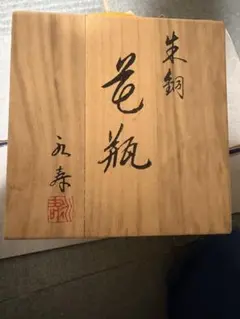 朱銅
花瓶
永寿